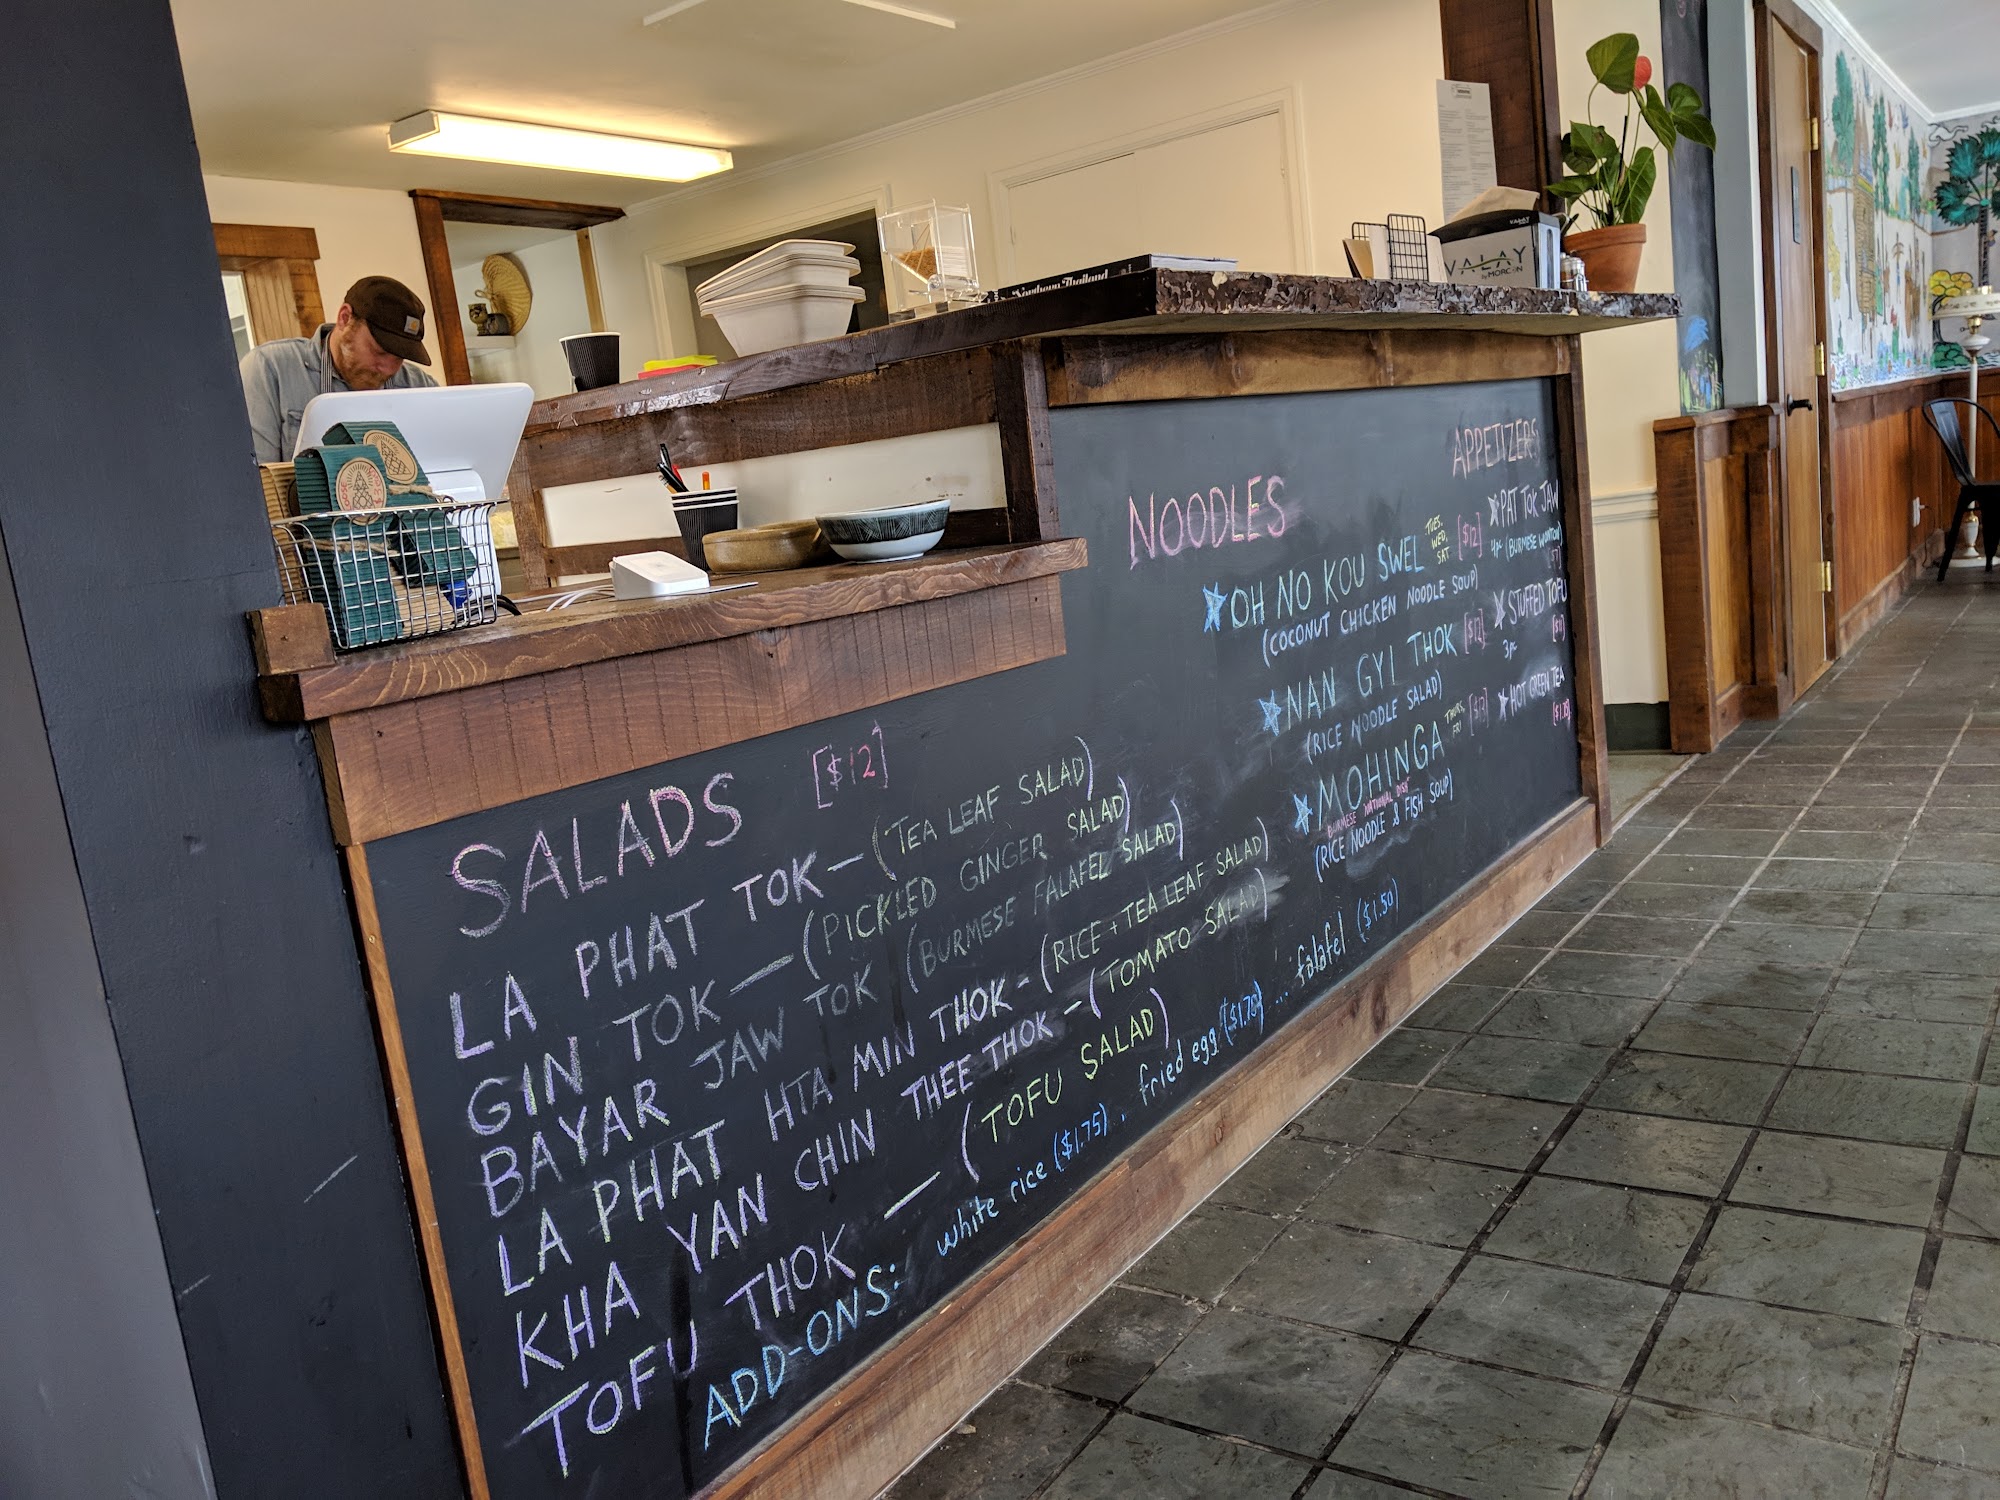 SALADS [$12]
LA PHAT TOK — (TEA LEAF SALAD)
GIN TOK — (PICKLED GINGER SALAD)
BAYAR JAW TOK (BURMESE FALAFEL SALAD)
LA PHAT HTA MIN THOK - (RICE + TEA LEAF SALAD)
KHA YAN CHIN THEE THOK - (TOMATO SALAD)
TOFU THOK — (TOFU SALAD)
ADD-ONS: white rice ($1.75). fried egg ($1.78) ... falafel ($1.50)
NOODLES
OH NO KOU SWEL TUES, WED, SAT [$12]
(COCONUT CHICKEN NOODLE SOUP)
NAN GYI THOK [$12]
(RICE NOODLE SALAD)
MOHINGA THURS, FRI [$12]
BURMESE NATIONAL DISH
(RICE NOODLE & FISH SOUP)
APPETIZERS
PAT TOK JAW
4pc (BURMESE WONTON)
STUFFED TOFU
3pc
HOT GREEN TEA
[$1.25]
Northern Thailand
VALAY
VALAY
by MORCON